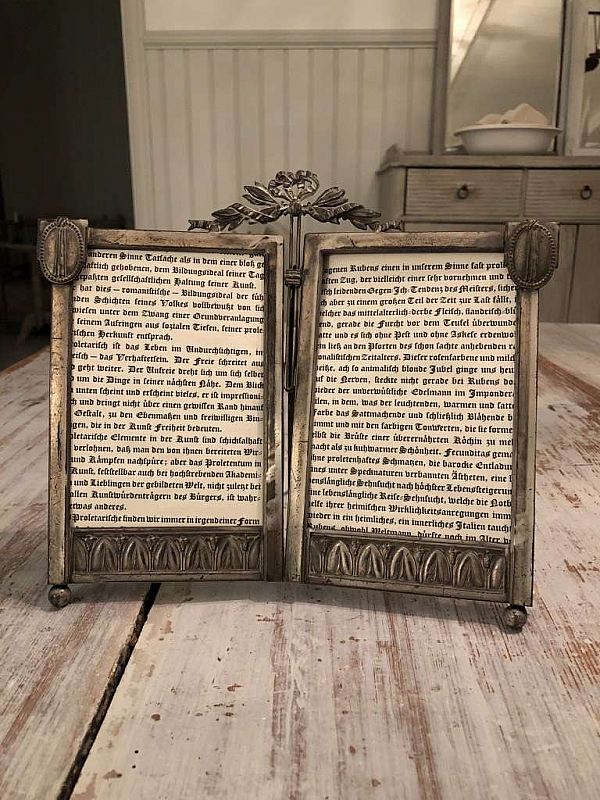 anderen Sinne Tatsache als in dem einer bloß ge
aftlich gehobenen, dem Bildungsideal seiner Tag
epaßten gesellschaftlichen Haltung seiner Kunst.
hat dies — romanistische — Bildungsideal der füh
den Schichten seines Volkes vollbewußt von sich
wiesen unter dem Zwang einer Grundveranlagung
seinem Aufringen aus sozialen Tiefen, seiner prole
rischen Herkunft entsprach.
oletarisch ist das Leben im Undurchsichtigen, im
eisch — das Verhaftetsein. Der Freie schreitet aus
geht weiter. Der Unfreie dreht sich um sich selber
um die Dinge in seiner nächsten Nähe. Dem Blick
unten scheint und erscheint vieles, er ist impressioni-
und dringt nicht über einen gewissen Rand hinauf
Gestalt, zu den Ebenmaßen und freiwilligen Bin
gen, die in der Kunst Freiheit bedeuten.
letarische Elemente in der Kunst sind schicksalhaft
verlohnen, daß man den von ihnen bereiteten Wir-
und Kämpfen nachspüre; aber das Proletentum in
Kunst, feststellbar auch bei hochstrebenden Akademi-
und Lieblingen der gebildeten Welt, nicht zuletzt bei
allen Kunstwürdenträgern des Bürgers, ist wahr-
etwas anderes.
Proletarische finden wir immer in irgendeiner Form
genen Rubens einen in unserem Sinne fast prole
ften Zug, der vielleicht einer sehr vornehmen und
ch leidenden Gegen-Ich-Tendenz des Meisters, sicher
ch aber zu einem großen Teil der Zeit zur Last fällt,
elcher das mittelalterlich-derbe Fleisch, flandrisch-blü
end, gerade die Furcht vor dem Teufel überwunde
atte und es sich ohne Pest und ohne Askese erdenwo
n ließ an den Pforten des schon sachte anhebenden ra
onalistischen Zeitalters. Dieser rosenfarbene und milch
eiße, ach so animalisch blonde Jubel ginge uns heu
uf die Nerven, steckte nicht gerade bei Rubens do
ieder der unverwüstliche Edelmann im Imponder
len, in dem, was der leuchtenden, warmen und satte
Farbe das Sattmachende und schließlich Blähende b
immt und mit den farbigen Tonwerten, die sie forme
elbst die Brüste einer überernährten Köchin zu mel
macht als zu kuhwarmer Schönheit. Fecunditas gema
ohne proletenhaftes Schmatzen, die barocke Entladun
ines unter Speknaturen verbannten Ästheten, eine l
benslängliche Sehnsucht nach höchster Lebenssteigerun
ine lebenslängliche Reise-Sehnsucht, welche die Notb
helfe ihrer heimischen Wirklichkeitsanregungen imm
wieder in ein heimliches, ein innerliches Italien taucht
Rubens, obwohl Weltmann, dürfte noch im Alter